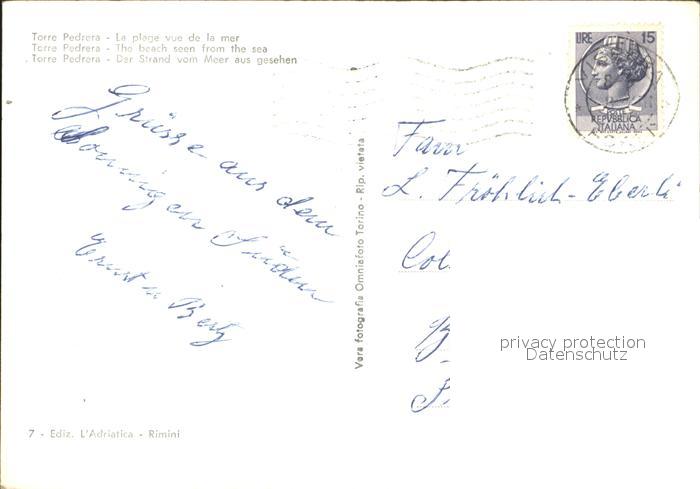 Torre Pedrera - La plage vue de la mer
Torre Pedrera - The beach seen from the sea
Torre Pedrera - Der Strand vom Meer aus gesehen
LIRE 15
POSTE
REPVBBLICA
ITALIANA
Grüsse aus dem
sonnigen Süden
Ernst u
Vera fotografia Omniafoto Torino - Rip. vietata
Frau
L. Fröhlich-Eberli
privacy protection
Datenschutz
7 - Ediz. L'Adriatica - Rimini